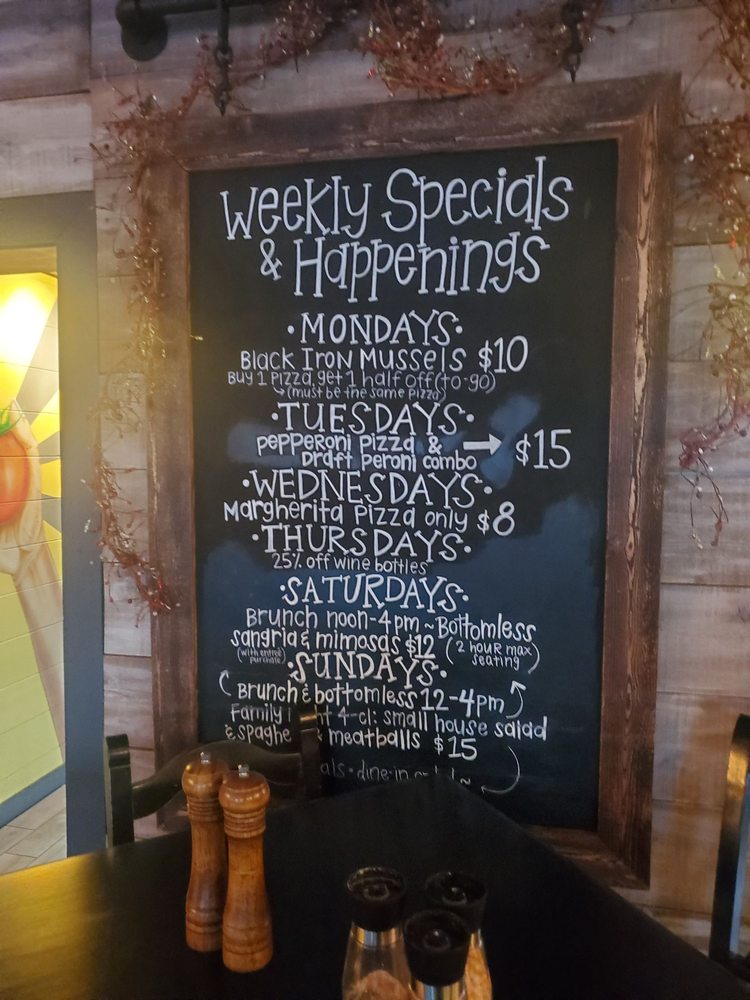 Weekly Specials
& Happenings
•MONDAYS•
Black Iron Mussels $10
Buy 1 Pizza, get 1 half off (to-go)
(must be the same pizza)
•TUESDAYS•
pepperoni pizza & → $15
Draft peroni combo
•WEDNESDAYS•
Margherita Pizza only $8
•THURSDAYS•
25% off wine bottles
•SATURDAYS•
Brunch noon-4pm ~ Bottomless
sangria & mimosas $12 (2 hour max
(with entree purchase) seating)
•SUNDAYS•
Brunch & bottomless 12-4pm
Family 4-cl: small house salad
& spaghe meatballs $15
dine-in